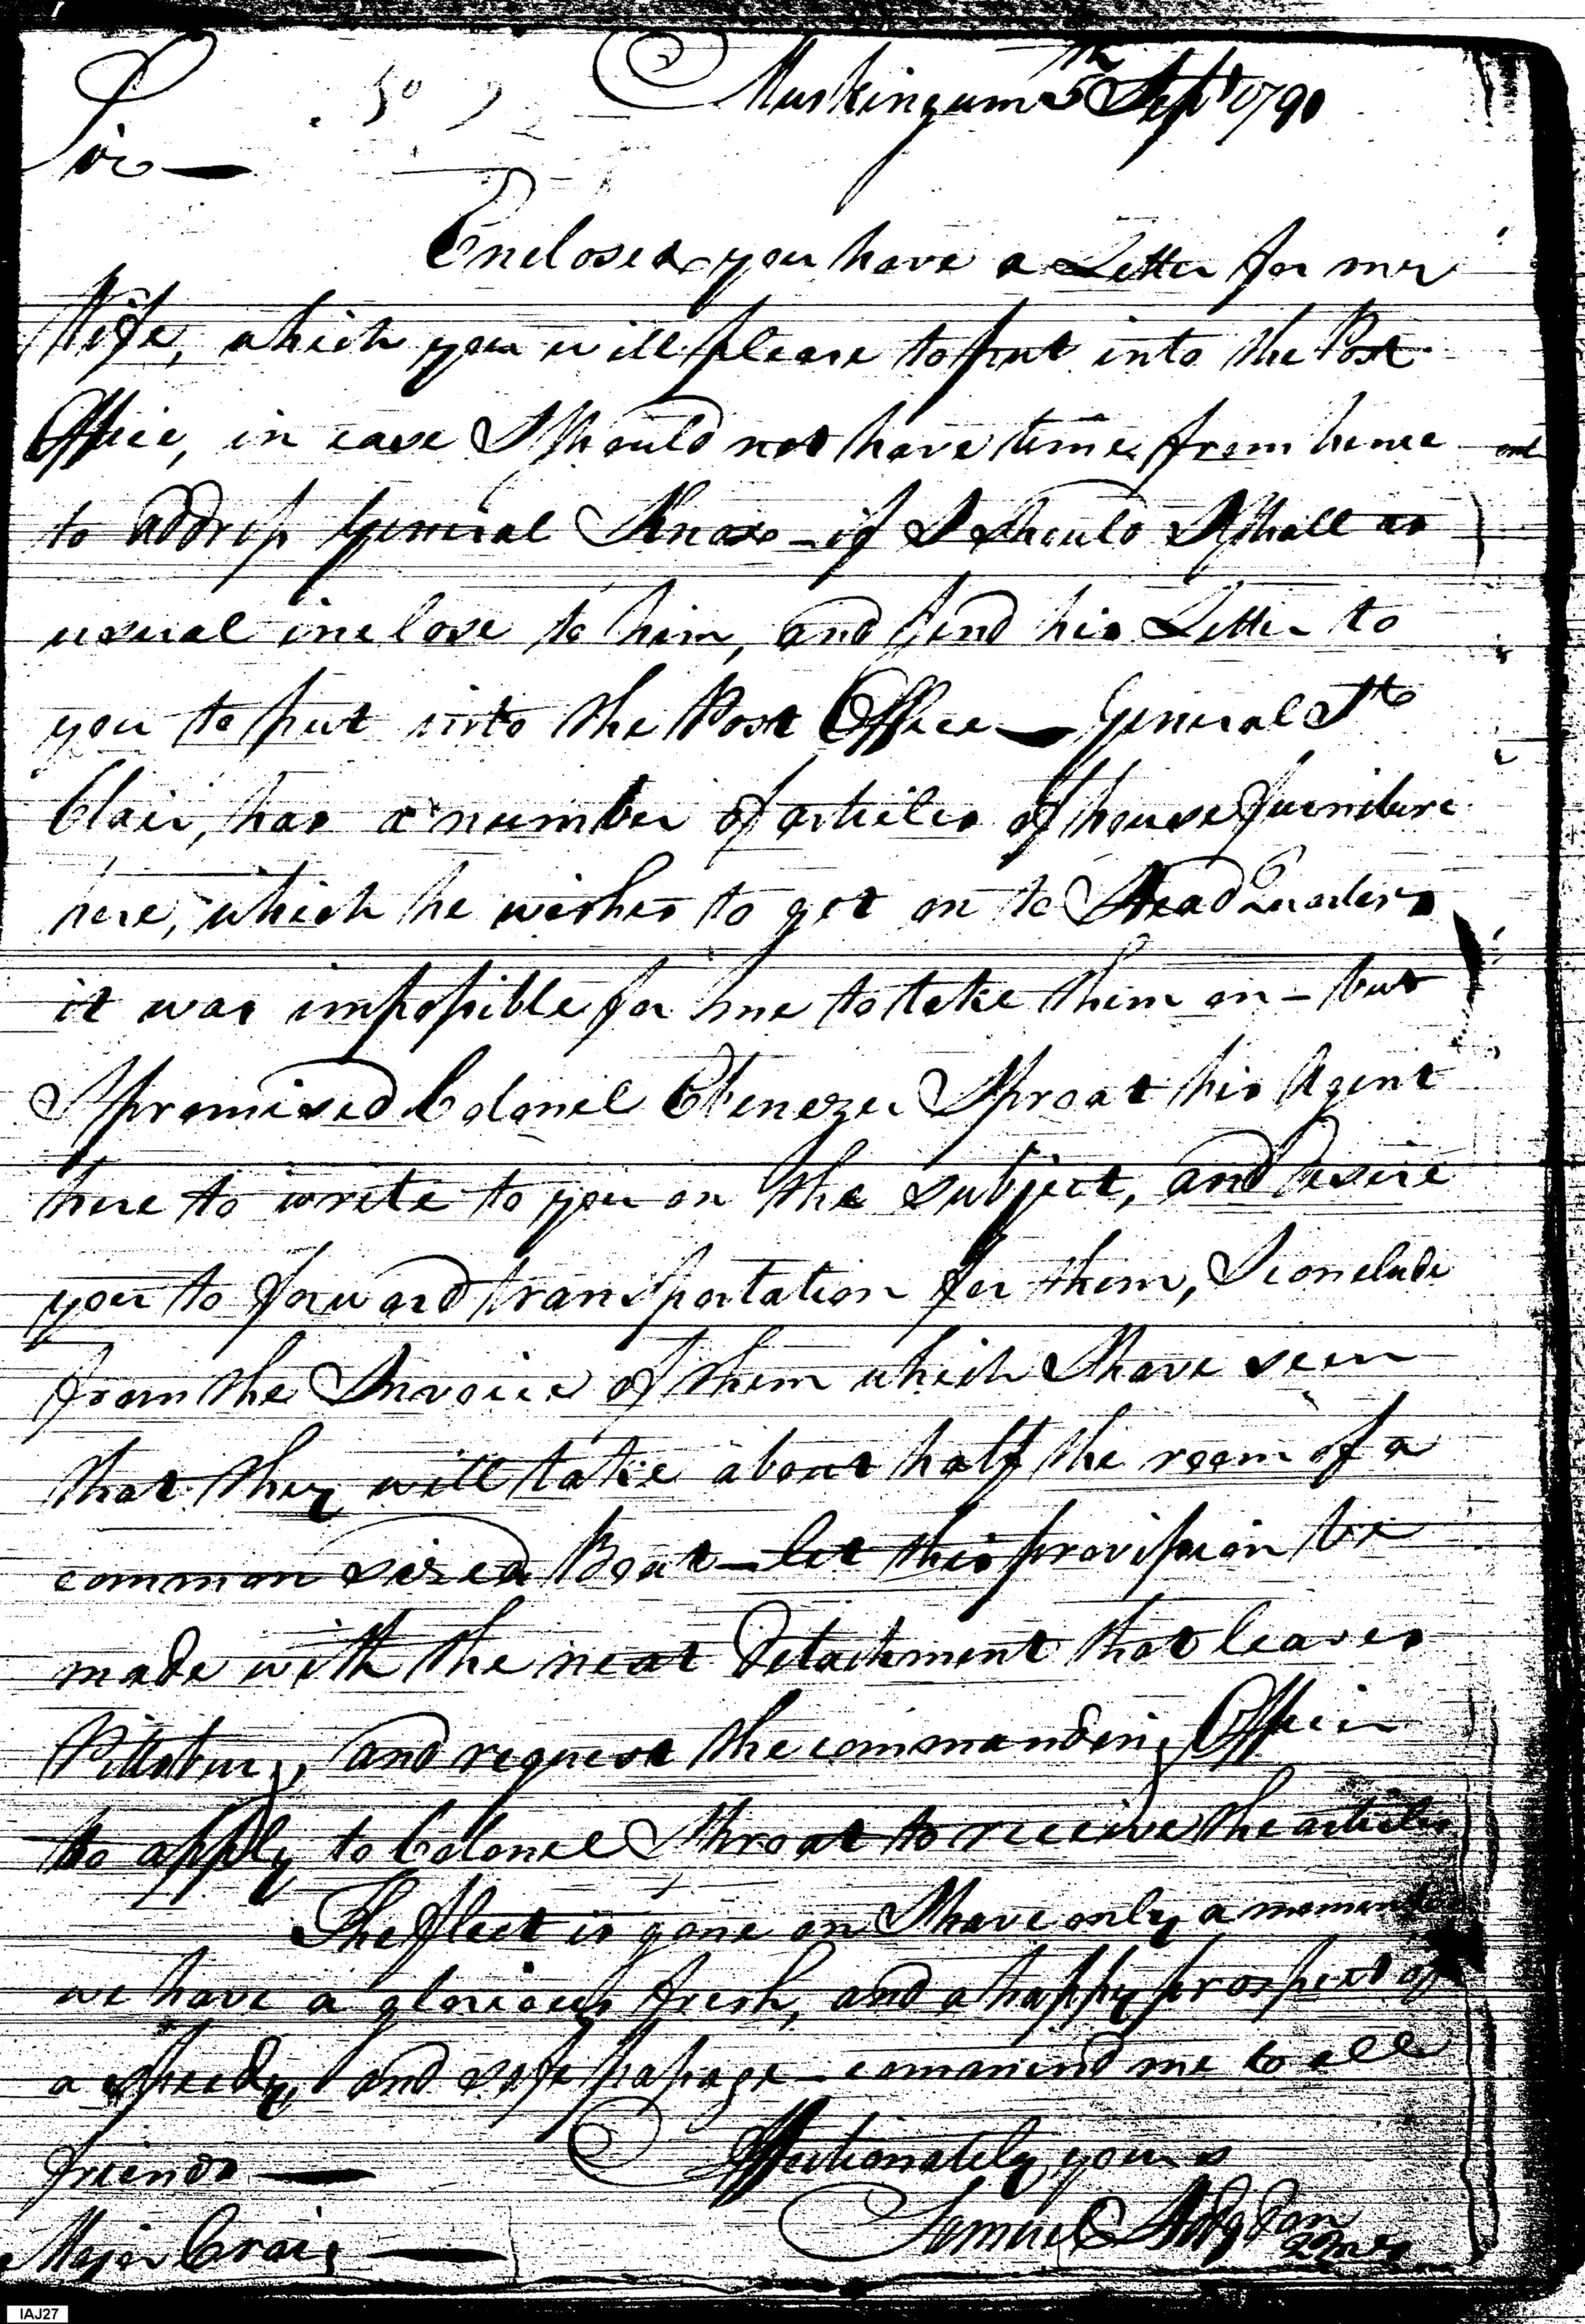 Muskingum 5th Sept 1790
Sir —
Enclosed you have a Letter for my
Wife, which you will please to put into the Post
Office, in case I should not have time from hence
to address General Knox – if I should I shall as
usual inclose to him, and send his Letter to
you to put into the Post Office — General St
Clair, has a number of articles of house furniture
here, which he wishes to get on to Head Quarters
it was impossible for me to take them on – but
I promised Colonel Ebenezer Sproat his Agent
here to write to you on the subject, and desire
you to forward transportation for them, I conclude
from the Invoice of them which I have seen
that they will take about half the room of a
common sized Boat – let this provision be
made with the next Detachment that leaves
Pittsburg, and request the commanding Officer
to apply to Colonel Sproat to receive the articles
The fleet is gone on I have only a moment
we have a glorious fresh, and a happy prospect of
a speedy and safe passage – commend me to all
friends —
Affectionately yours
Samuel Hodgdon
QMG
Major Craig —
IAJ27